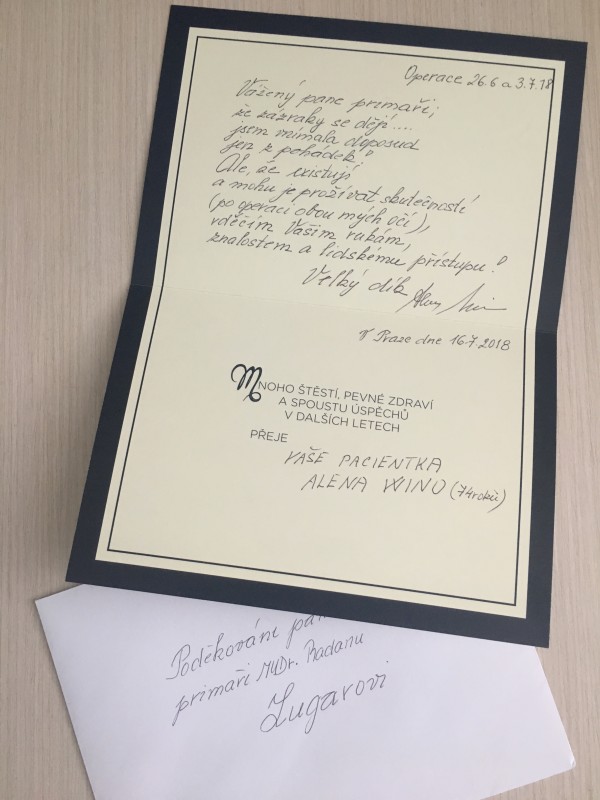 Operace 26.6 a 3.7.18
Vážený pane primaři,
že zázraky se dějí....
jsem vnímala doposud
jen z pohádek!
Ale, že existují
a mohu je prožívat skutečností
(po operaci obou mých očí),
vděčím Vašim rukám,
znalostem a lidskému přístupu!
Velký dík
V Praze dne 16.7.2018
MNOHO ŠTĚSTÍ, PEVNÉ ZDRAVÍ
A SPOUSTU ÚSPĚCHŮ
V DALŠÍCH LETECH
PŘEJE
VAŠE PACIENTKA
ALENA WINU (74roků)
Poděkování
primaři MUDr. Radanu
Zugarovi